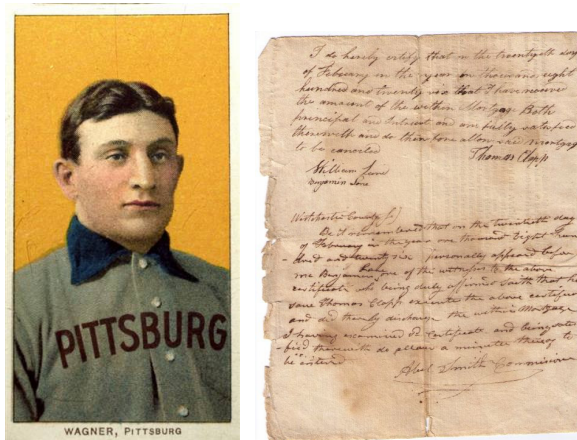 PITTSBURG
WAGNER, PITTSBURG
I do hereby certify that on the twentyeth day
of February in the year on thousand eight
hundred and twenty six that I have receive
the amount of the within Mortgage Both
principal and Interest and am fully
therewith and do allow said Mortgage
to be canceled
Thomas Clapp
William
Benjamin
County
Be it that on the twentieth day
of February in the year one thousand Eight Hun
dred and twenty six personally appeared before
me Benjamin one of the witnesses to the above
certificate who being duly affirmed saith that he
saw Thomas Clapp execute the above certificate
and did thereby discharge the within Mortgage
I having examined Sd certificate and being satis
fied therewith do allow a minute thereof to
be entered
Abel Smith Commissioner